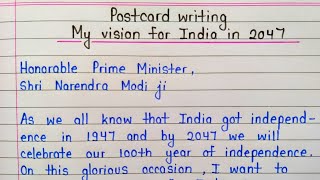 Postcard writing
My vision for India in 2047
Honorable Prime Minister,
Shri Narendra Modi ji
As we all know that India got independ-
ence in 1947 and by 2047 we will
celebrate our 100th year of independence.
On this glorious occasion, I want to